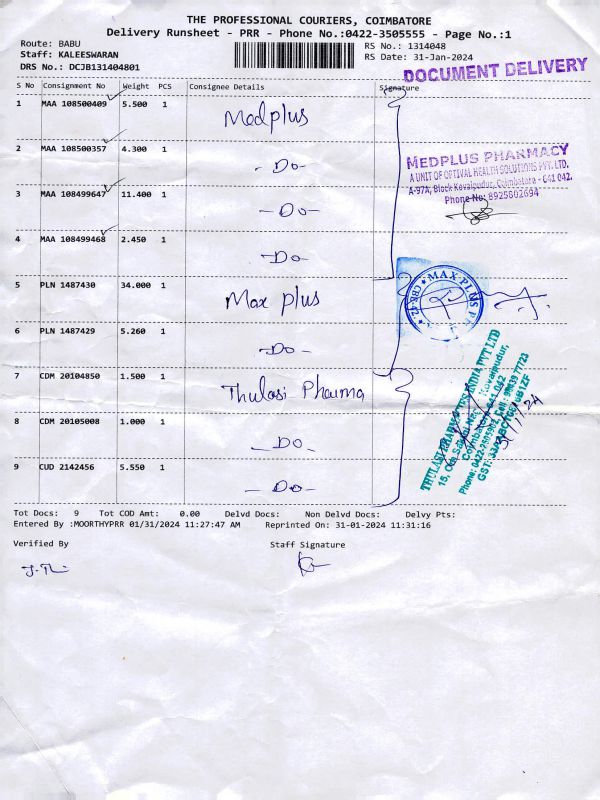 THE PROFESSIONAL COURIERS, COIMBATORE
Delivery Runsheet - PRR - Phone No.:0422-3505555 - Page No.:1
Route: BABU
Staff: KALEESWARAN
DRS No.: DCJB131404801
RS No.: 1314048
RS Date: 31-Jan-2024
DOCUMENT DELIVERY
S No Consignment No Weight PCS Consignee Details Signature
1 MAA 108500409 5.500 1 Medplus
2 MAA 108500357 4.300 1 - Do -
3 MAA 108499647 11.400 1 - Do -
4 MAA 108499468 2.450 1 - Do -
MEDPLUS PHARMACY
A UNIT OF OPTIVAL HEALTH SOLUTIONS PVT. LTD.
A-97A, Block Kovaipudur, Coimbatore - 641 042.
Phone No: 8925802694
5 PLN 1487430 34.000 1 Max plus
6 PLN 1487429 5.260 1 - Do -
MAX PLUS
CBE-42
7 CDM 20104850 1.500 1 Thulasi Pharma
8 CDM 20105008 1.000 1 - Do -
9 CUD 2142456 5.550 1 - Do -
THULASI PHARMACIES INDIA PVT LTD
Kovaipudur,
Coimbatore - 641 042
Tot Docs: 9 Tot COD Amt: 0.00 Delvd Docs: Non Delvd Docs: Delvy Pts:
Entered By :MOORTHYPRR 01/31/2024 11:27:47 AM Reprinted On: 31-01-2024 11:31:16
Verified By Staff Signature